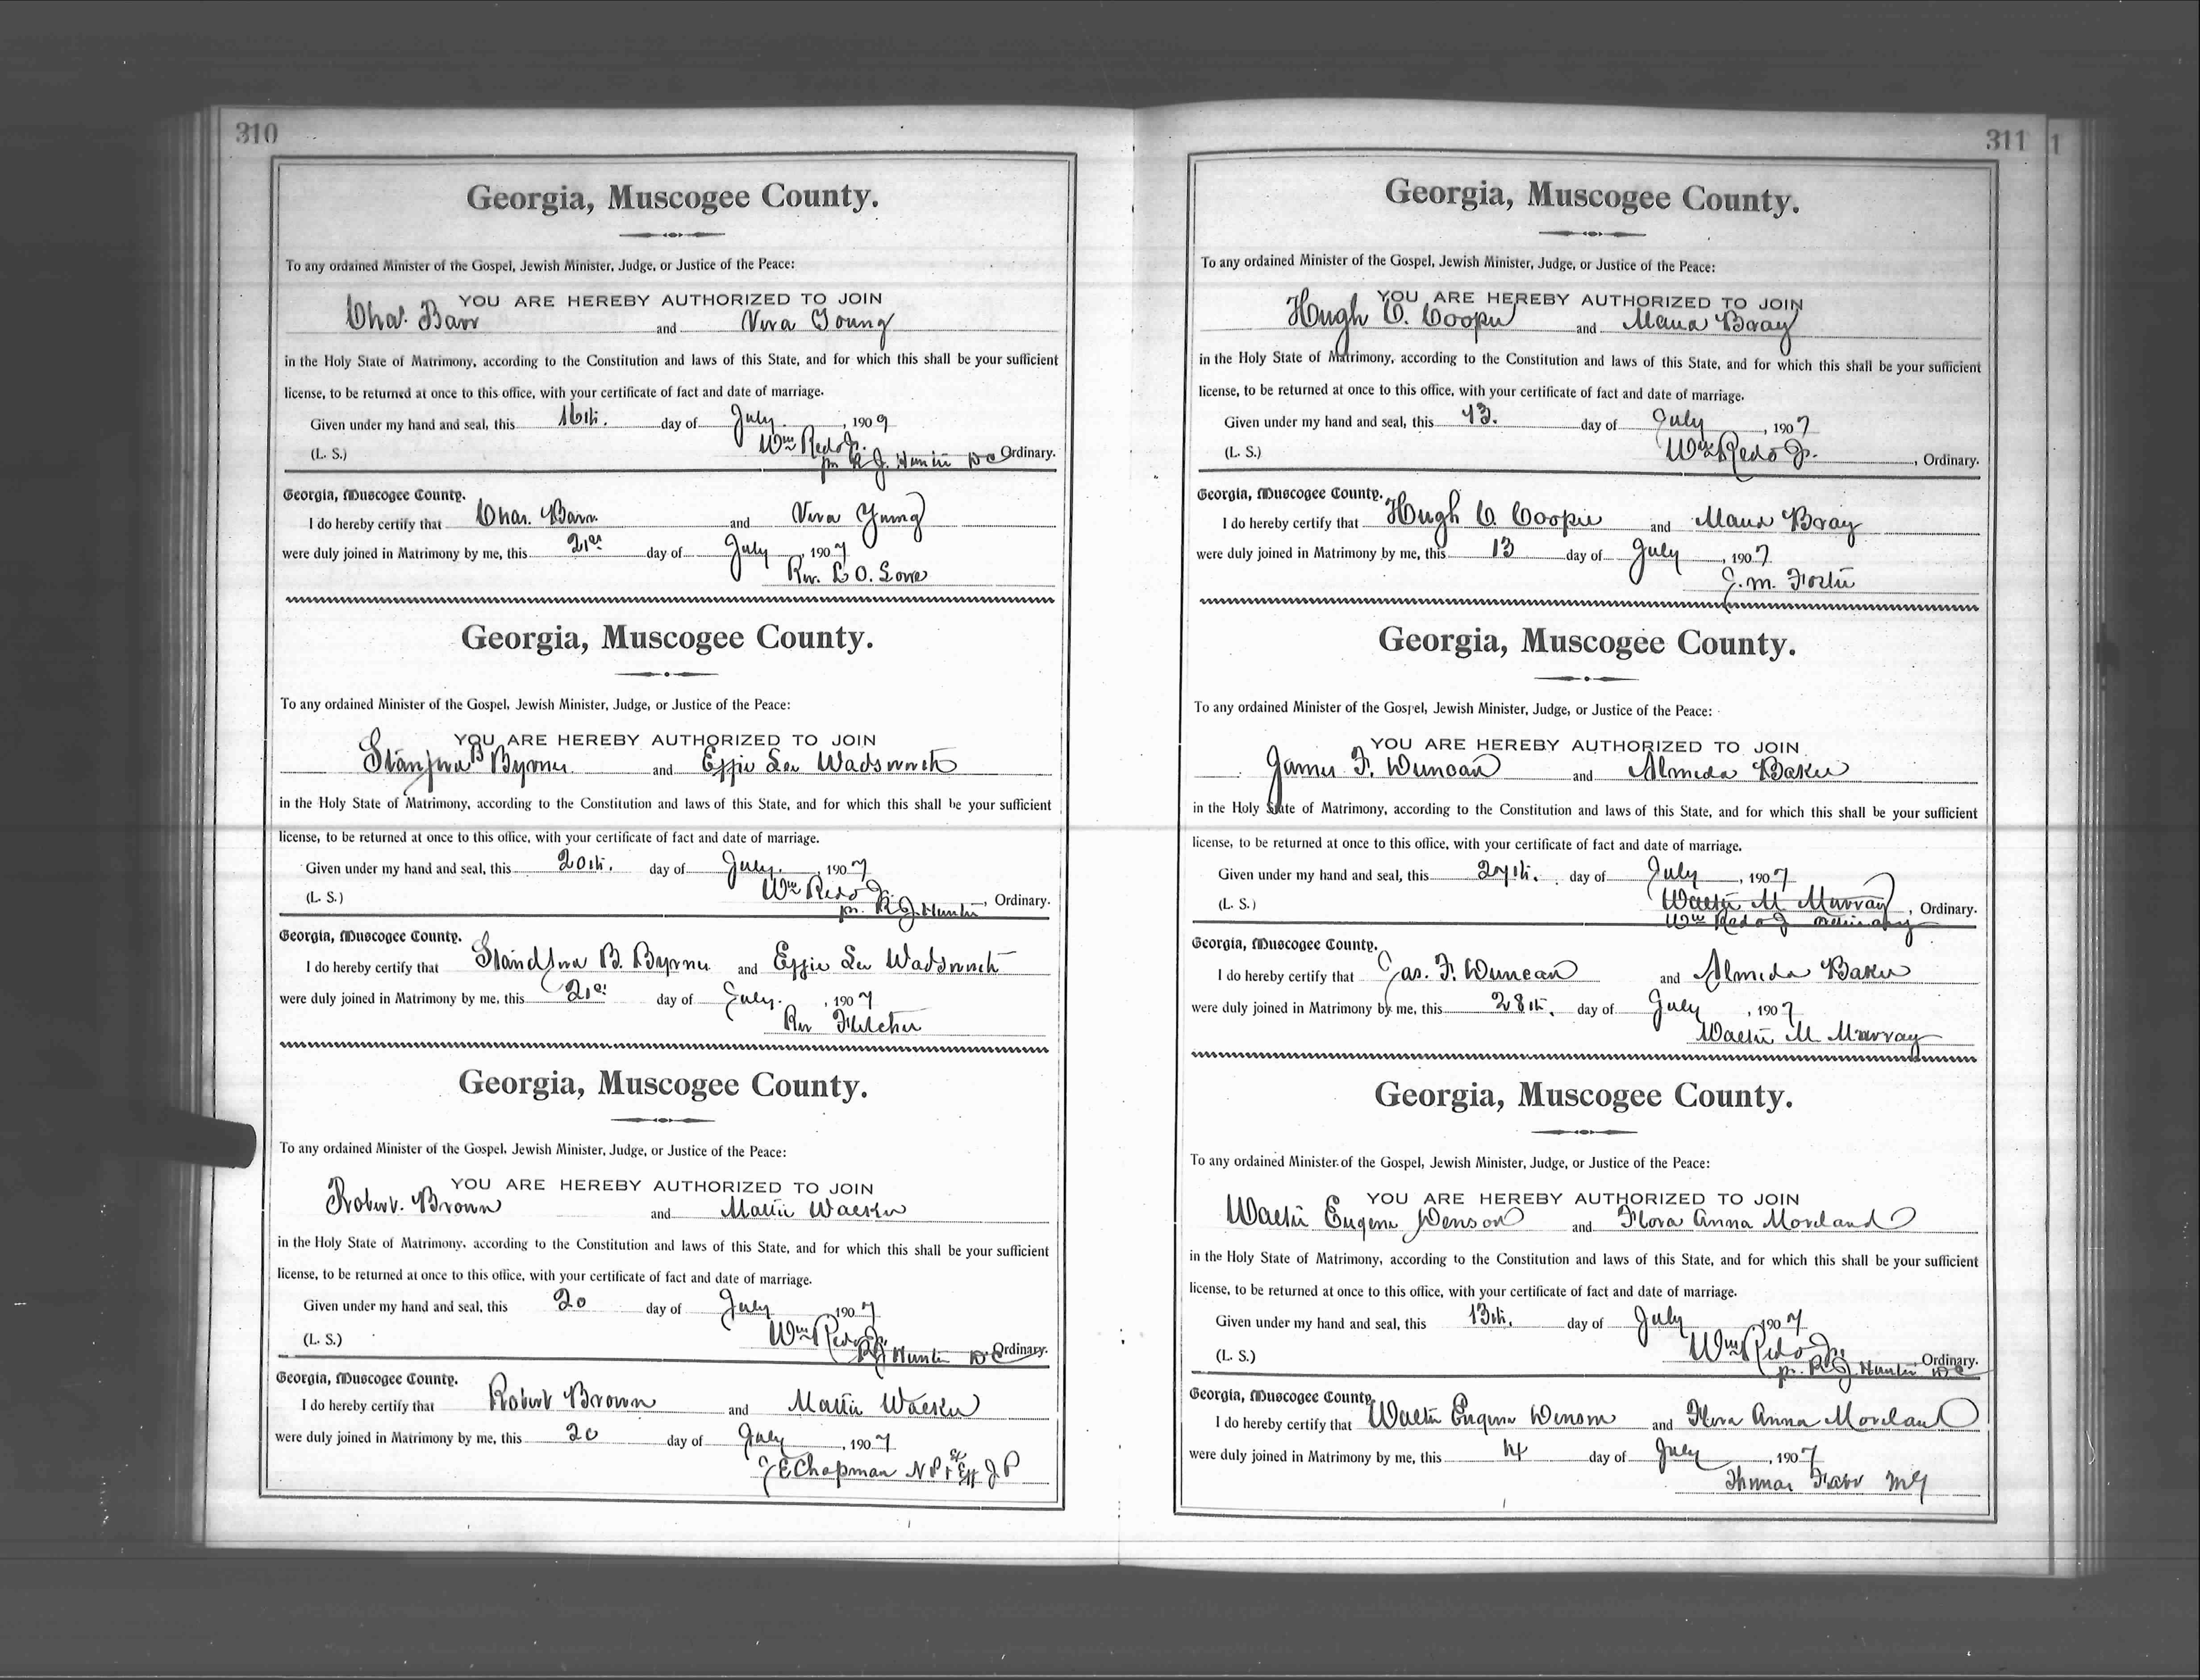 310
Georgia, Muscogee County.
To any ordained Minister of the Gospel, Jewish Minister, Judge, or Justice of the Peace:
YOU ARE HEREBY AUTHORIZED TO JOIN
Chas. Barr and Vera Young
in the Holy State of Matrimony, according to the Constitution and laws of this State, and for which this shall be your sufficient
license, to be returned at once to this office, with your certificate of fact and date of marriage.
Given under my hand and seal, this 16th. day of July. , 1909
(L. S.) Wm Redd Jr.
pr R J. Hunter DC Ordinary.
Georgia, Muscogee County.
I do hereby certify that Chas. Barr. and Vera Young
were duly joined in Matrimony by me, this 21st day of July , 1907
Rev. L O. Love
Georgia, Muscogee County.
To any ordained Minister of the Gospel, Jewish Minister, Judge, or Justice of the Peace:
YOU ARE HEREBY AUTHORIZED TO JOIN
B Byrne and Effie Lee Wadsworth
in the Holy State of Matrimony, according to the Constitution and laws of this State, and for which this shall be your sufficient
license, to be returned at once to this office, with your certificate of fact and date of marriage.
Given under my hand and seal, this 20th. day of July. , 1907
(L. S.) Wm Redd Jr.
pr. R J Hunter , Ordinary.
Georgia, Muscogee County.
I do hereby certify that B. Byrne and Effie Lee Wadsworth
were duly joined in Matrimony by me, this 21st day of July. , 1907
Rev Fletcher
Georgia, Muscogee County.
To any ordained Minister of the Gospel, Jewish Minister, Judge, or Justice of the Peace:
YOU ARE HEREBY AUTHORIZED TO JOIN
Robert. Brown and Mattie Walker
in the Holy State of Matrimony, according to the Constitution and laws of this State, and for which this shall be your sufficient
license, to be returned at once to this office, with your certificate of fact and date of marriage.
Given under my hand and seal, this 20 day of July , 1907
(L. S.) Wm Redd Jr.
R J Hunter DC Ordinary.
Georgia, Muscogee County.
I do hereby certify that Robert Brown and Mattie Walker
were duly joined in Matrimony by me, this 20 day of July , 1907
J E Chapman N P & Ex Off J P
311
Georgia, Muscogee County.
To any ordained Minister of the Gospel, Jewish Minister, Judge, or Justice of the Peace:
YOU ARE HEREBY AUTHORIZED TO JOIN
Hugh C. Cooper and Maud Bray
in the Holy State of Matrimony, according to the Constitution and laws of this State, and for which this shall be your sufficient
license, to be returned at once to this office, with your certificate of fact and date of marriage.
Given under my hand and seal, this 13. day of July , 1907
(L. S.) Wm Redd Jr. , Ordinary.
Georgia, Muscogee County.
I do hereby certify that Hugh C. Cooper and Maud Bray
were duly joined in Matrimony by me, this 13 day of July , 1907
J. M. Foster
Georgia, Muscogee County.
To any ordained Minister of the Gospel, Jewish Minister, Judge, or Justice of the Peace:
YOU ARE HEREBY AUTHORIZED TO JOIN
James F. Duncan and Almeda Baker
in the Holy State of Matrimony, according to the Constitution and laws of this State, and for which this shall be your sufficient
license, to be returned at once to this office, with your certificate of fact and date of marriage.
Given under my hand and seal, this 27th. day of July , 1907
(L. S.) Walter M Murray , Ordinary.
Wm Redd Jr Ordinary
Georgia, Muscogee County.
I do hereby certify that Jas. F. Duncan and Almeda Baker
were duly joined in Matrimony by me, this 28th. day of July , 1907
Walter M Murray
Georgia, Muscogee County.
To any ordained Minister of the Gospel, Jewish Minister, Judge, or Justice of the Peace:
YOU ARE HEREBY AUTHORIZED TO JOIN
Walter Eugene Denson and Flora Anna Moreland
in the Holy State of Matrimony, according to the Constitution and laws of this State, and for which this shall be your sufficient
license, to be returned at once to this office, with your certificate of fact and date of marriage.
Given under my hand and seal, this 13th. day of July , 1907
(L. S.) Wm Redd Jr.
pr. R J Hunter DC Ordinary.
Georgia, Muscogee County.
I do hereby certify that Walter Eugene Denson and Flora Anna Moreland
were duly joined in Matrimony by me, this 14 day of July , 1907
Thomas MG